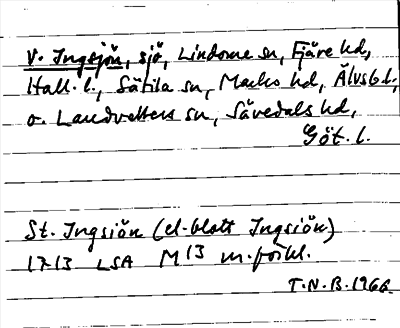 V. Ingsjön, sjö, Lindome sn, Fjäre hd,
Hall. l., Sätila sn, Marks hd, Älvsb. l.,
o. Landvetters sn, Sävedals hd,
Göt. l.
St. Ingsiön (el. blott Ingsiön)
1713 LSA M13 m. förkl.
T.N.B. 1966.